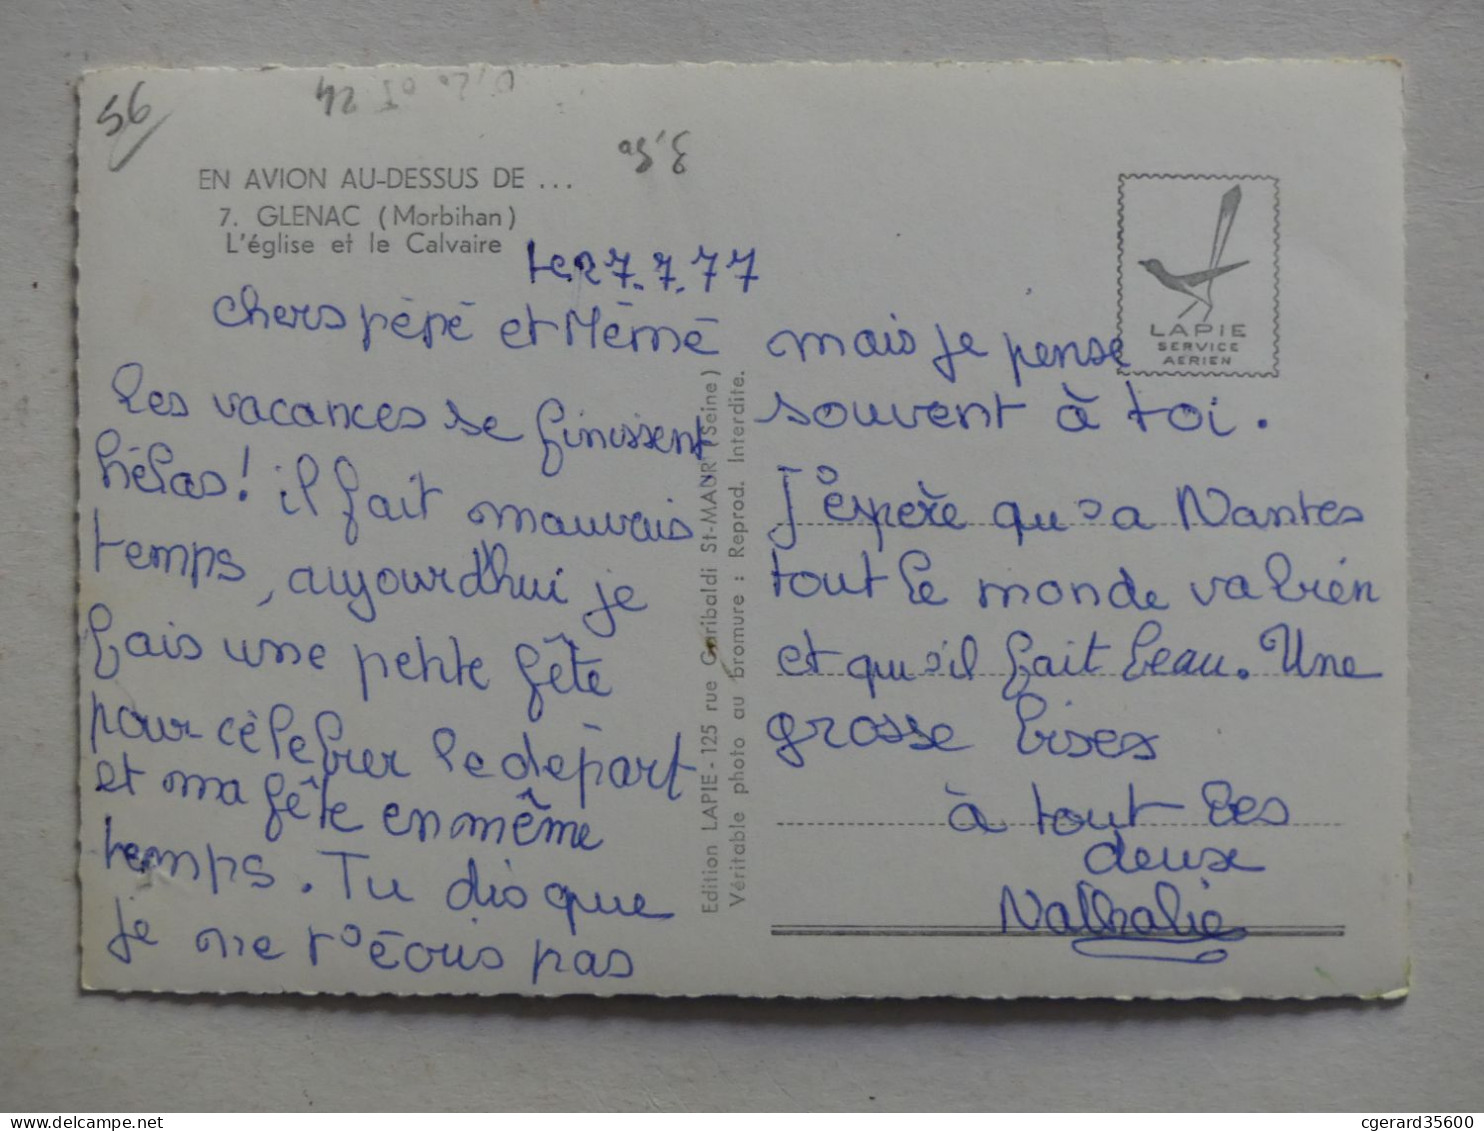 56
24
EN AVION AU-DESSUS DE ...
7. GLENAC (Morbihan)
L'église et le Calvaire
Le 27.7.77
chers pépé et Mémé
Les vacances se finissent
hélas! il fait mauvais
temps, aujourd'hui je
fais une petite fête
pour célébrer le départ
et ma fête en même
temps. Tu dis que
je ne t'écris pas
Edition LAPIE - 125 rue Garibaldi St-MAUR (Seine)
Véritable photo au bromure : Reprod. Interdite.
LAPIE
SERVICE
AERIEN
mais je pense
souvent à toi.
J'espère qu'a Nantes
tout le monde va bien
et qu'il fait beau. Une
grosse bises
à tout les
deux
Nathalie
cgerard35600